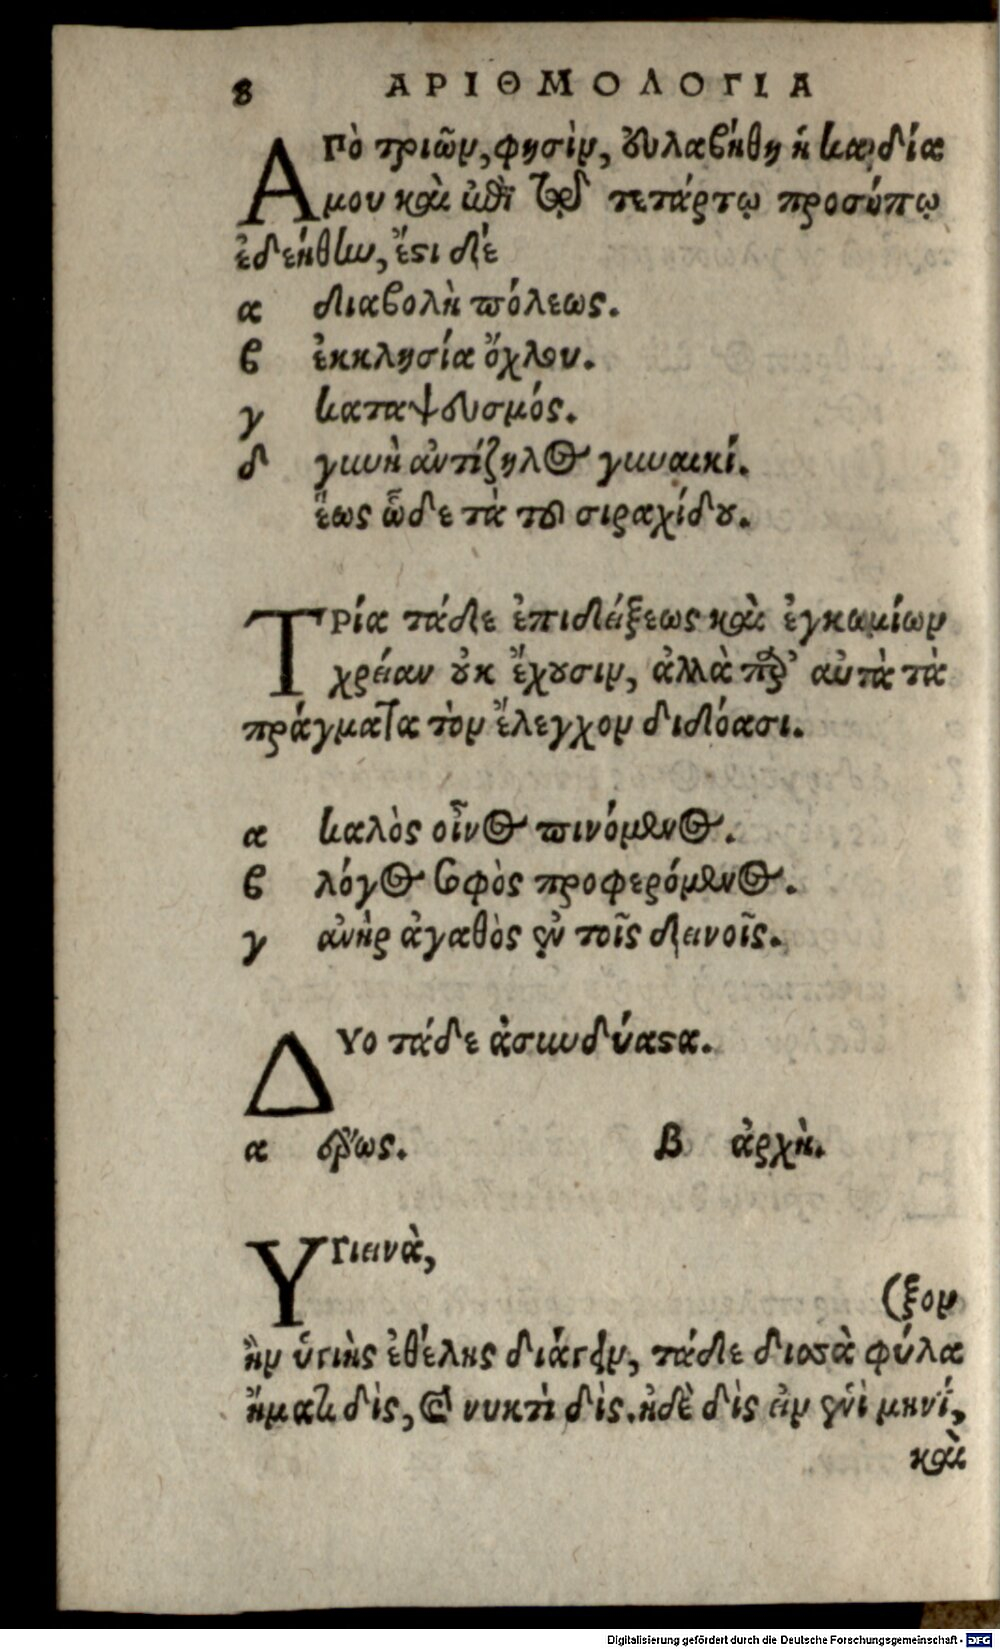 8 ΑΡΙΘΜΟΛΟΓΙΑ
ΑΠὸ τριῶν, φησὶν, εὐλαβήθη ἡ καρδία
μου καὶ ἐπὶ τῷ τετάρτῳ προσώπῳ
ἐδεήθην, ἔστι δὲ
α διαβολὴ πόλεως.
β ἐκκλησία ὄχλου.
γ καταψευσμός.
δ γυνὴ ἀντίζηλος γυναικί.
ἕως ὧδε τὰ τοῦ σιραχίδου.
ΤΡία τάδε ἐπιδείξεως καὶ ἐγκωμίων
χρείαν οὐκ ἔχουσιν, ἀλλὰ παρ' αὐτὰ τὰ
πράγματα τὸν ἔλεγχον διδόασι.
α καλὸς οἶνος πινόμενος.
β λόγος σοφὸς προφερόμενος.
γ ἀνὴρ ἀγαθὸς ἐν τοῖς δεινοῖς.
ΔΥο τάδε ἀσυνδύαστα.
α ἔρως. Β ἀρχὴ.
ΥΓιεινὰ,
(ξον
ἢν ὑγιὴς ἐθέλης διάγειν, τάδε δισσὰ φύλα
ἤματι δὶς, καὶ νυκτὶ δὶς. ἠδὲ δὶς εἰν ἑνὶ μηνί,
καὶ
Digitalisierung gefördert durch die Deutsche Forschungsgemeinschaft - DFG